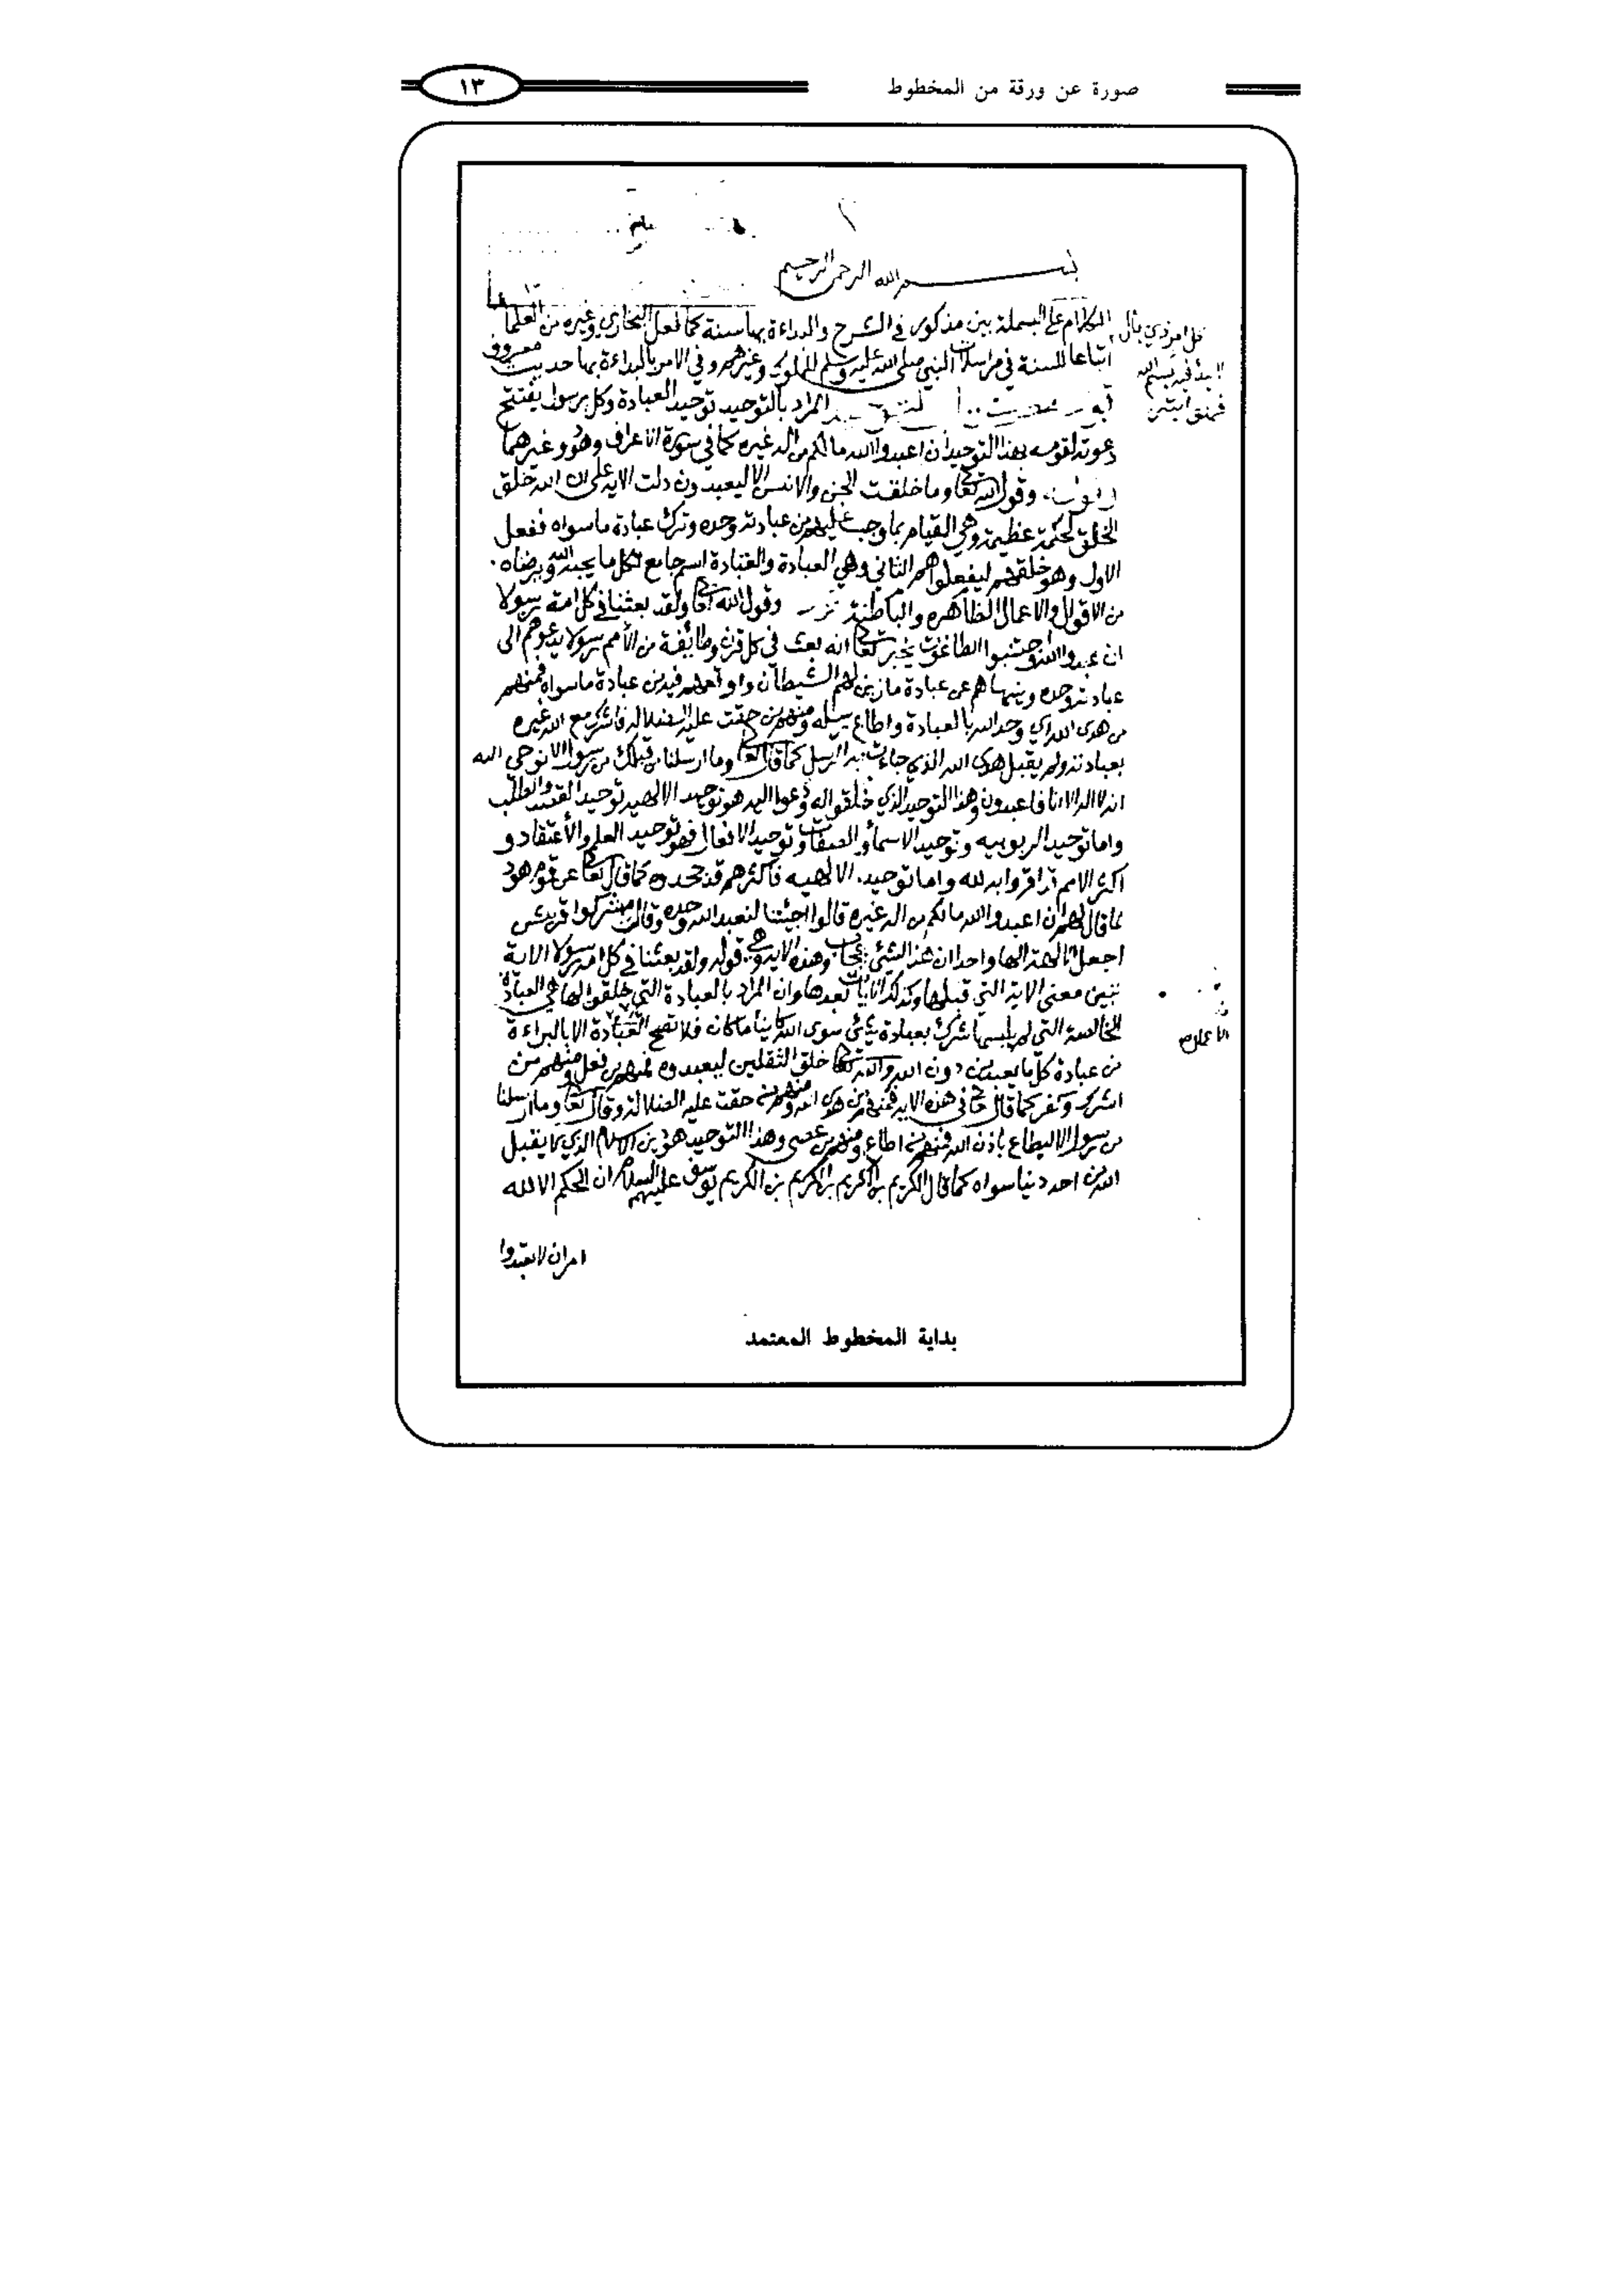 صورة عن ورقة من المخطوط
١٣
بسم الله الرحمن الرحيم
كل امر ذي بال
لا يبدأ فيه ببسم الله
فهو ابتر
الكلام على البسملة بين مذكور في الشرح والبداءة بها سنة كما فعل البخاري وغيره من العلما
اتباعا للسنة في مراسلات النبي صلى الله عليه وسلم للملوك وغيرهم وفي الامر بالبداءة بها حديث معروف
المراد بالتوحيد توحيد العبادة وكل رسول يفتتح
دعوته لقومه بهذا التوحيد ان اعبدوا الله ما لكم من اله غيره كما في سورة الاعراف وهود وغيرهما
وقول الله تعا وما خلقت الجن والانس الا ليعبدون دلت الاية على ان الله خلق
الخلق لحكمة عظيمة وهي القيام بما وجب عليهم من عبادته وحده وترك عبادة ما سواه ففعل
الاول وهو خلقهم ليفعلوا هم الثاني وهي العبادة والعبادة اسم جامع لكل ما يحبه الله ويرضاه
من الاقوال والاعمال الظاهره والباطنة وقول الله تعا ولقد بعثنا في كل امة رسولا
ان عبدوا الله واجتنبوا الطاغوت يخبر تعا انه بعث في كل قرن وطائفة من الأمم رسولا يدعوهم الى
عبادته وحده وينهاهم عن عبادة ما زين لهم الشيطان واوقعهم فيه من عبادة ما سواه فمنهم
من هدى الله اي وحد الله بالعبادة واطاع رسله ومنهم من حقت عليه الضلاله فاشرك مع الله غيره
بعبادته ولم يقبل هدى الله الذي جاءت به الرسل كما قال تعا وما ارسلنا من قبلك من رسول الا نوحي اليه
انه لا اله الا انا فاعبدون وهذا التوحيد الذي خلقوا له ودعوا اليه هو توحيد الالهيه توحيد القصد والطلب
واما توحيد الربوبيه وتوحيد الاسما والصفات وتوحيد الافعال فهو توحيد العلم والأعتقاد و
اكثر الامم قد اقروا به لله واما توحيد الالهيه فاكثرهم قد جحدوه كما قال تعا عن قوم هود
لما قال لهم ان اعبدوا الله ما لكم من اله غيره قالوا اجئتنا لنعبد الله وحده وقال مشركوا قريش
اجعل الالهة الها واحدا ان هذا لشئ عجاب وهذه الاية وهي قوله ولقد بعثنا في كل امة رسولا الاية
تبين معنى الاية التي قبلها وكذلك الايات بعدها وان المراد بالعبادة التي خلقوا لها هي العبادة
الخالصة التي لم يلبسها شرك بعبادة شئ سوى الله كاينا ما كان فلا تصح العبادة الا بالبراءة
من عبادة كل ما يعبد من دون الله والله تعا خلق الثقلين ليعبدوه فمنهم من فعل ومنهم من
اشرك وكفر كما قال تعا في هذه الاية فمنهم من هدى الله ومنهم من حقت عليه الضلالة وقال تعا وما ارسلنا
من رسول الا ليطاع باذن الله فمنهم من اطاع ومنهم من عصى وهذا التوحيد هو دين الاسلام الذي لا يقبل
الله من احد دينا سواه كما قال الكريم بن الكريم بن الكريم بن الكريم يوسف عليهم السلام ان الحكم الا لله
امر ان لا تعبدوا
بداية المخطوط المعتمد